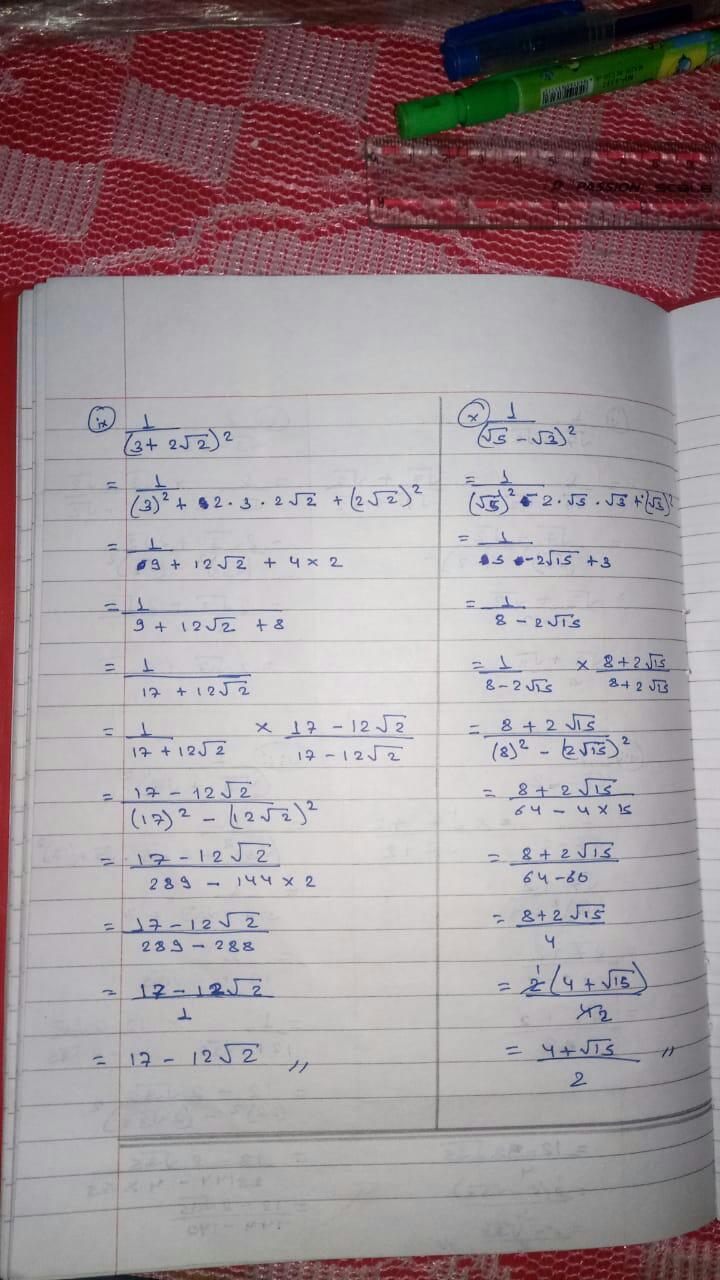 PASSION SCALE
(ix) 1/(3 + 2√2)²
= 1/((3)² + 2·3·2√2 + (2√2)²)
= 1/(9 + 12√2 + 4×2)
= 1/(9 + 12√2 + 8)
= 1/(17 + 12√2)
= 1/(17 + 12√2) × (17 - 12√2)/(17 - 12√2)
= (17 - 12√2)/((17)² - (12√2)²)
= (17 - 12√2)/(289 - 144×2)
= (17 - 12√2)/(289 - 288)
= (17 - 12√2)/1
= 17 - 12√2 ,,
(x) 1/(√5 - √3)²
= 1/((√5)² - 2·√5·√3 + (√3)²)
= 1/(5 - 2√15 + 3)
= 1/(8 - 2√15)
= 1/(8 - 2√15) × (8 + 2√15)/(8 + 2√15)
= (8 + 2√15)/((8)² - (2√15)²)
= (8 + 2√15)/(64 - 4×15)
= (8 + 2√15)/(64 - 60)
= (8 + 2√15)/4
= 2(4 + √15)/4 2
= (4 + √15)/2 ,,